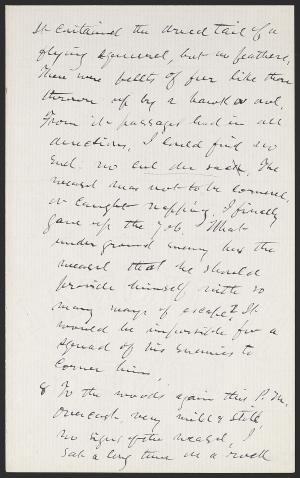 It contained the dried tail of a
flying squirrel, but no feathers.
There were pellets of fur like those
thrown up by a hawk or owl.
From it passages led in all
directions, I could find no
end. no cul du sack. The
weasel was not to be cornered,
or caught napping. I finally
gave up the job. What
underground enemy has the
weasel that he should
provide himself with so
many ways of escape? It
would be impossible for a
squad of his enemies to
corner him.
8 To the woods again this P.M.
overcast, very mild & still,
no signs of the weasel, I
sat a long time in a